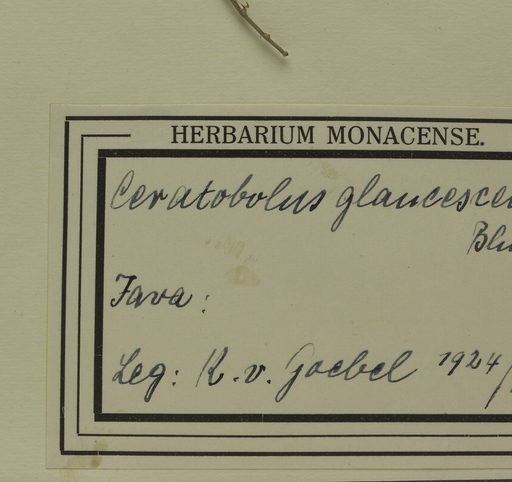 HERBARIUM MONACENSE.
Ceratobolus glaucesce
Blu
Java:
Leg: K. v. Goebel 1924/